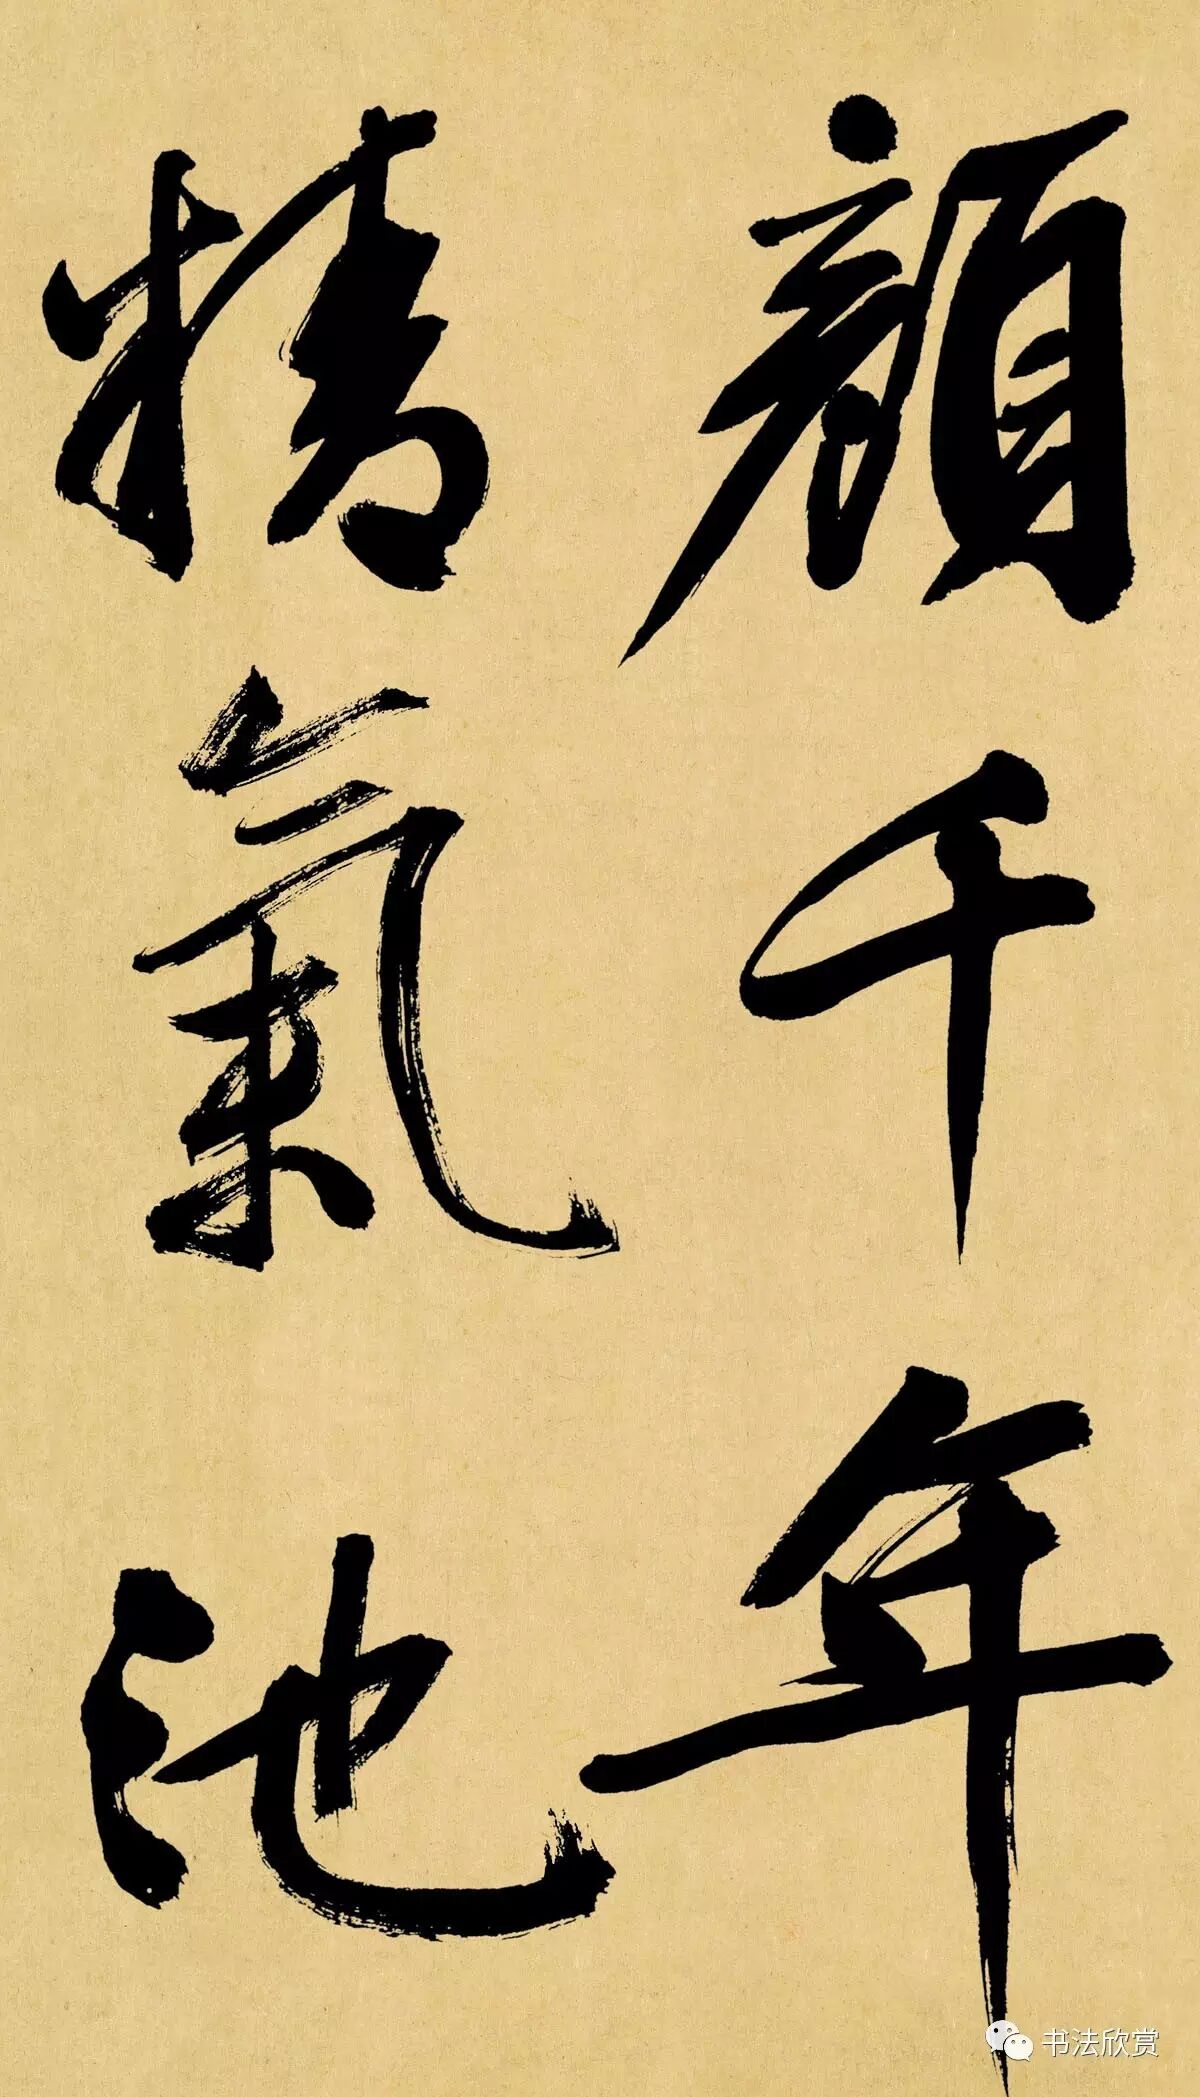 顔千年
精氣池
书法欣赏